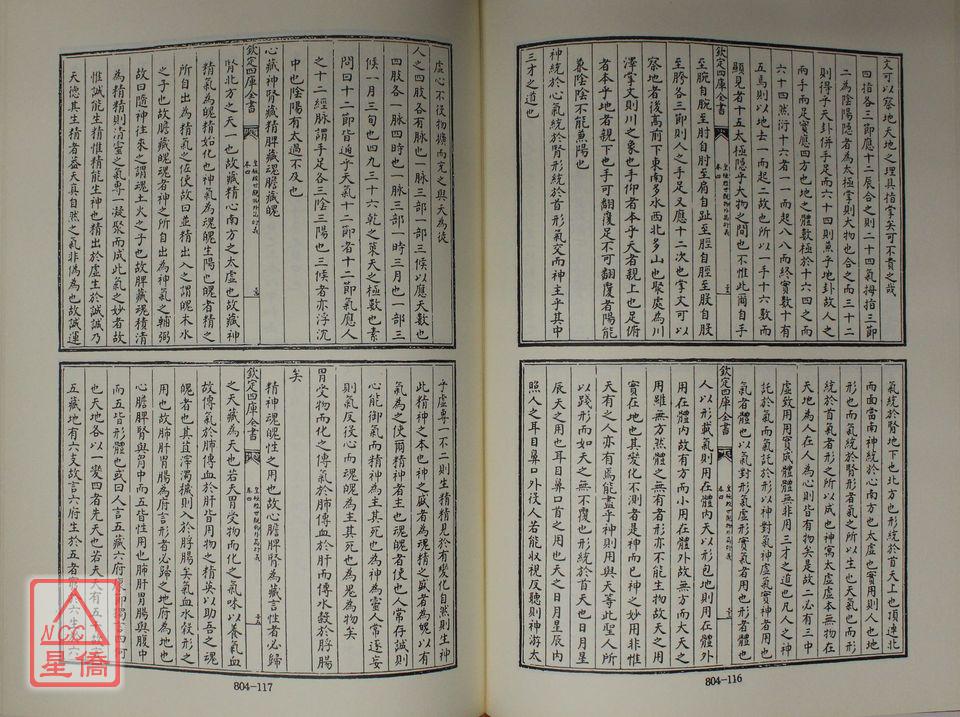 文可以察地天地之理具指掌矣可不貴之哉
四指各三節應十二辰合之則二十四氣拇指三節
二為陰陽隱者為太極掌則大物也合之而三十二
則得乎天卦併手足而六十四則兼乎地卦故人之
手而足實應四方也地之體數極於十六四之而
六十四然衍十六者一一而起八八而終實數十有
五焉則以地去一而起二故也所以一手十六數而
顯見者十五太極隱乎大物之間也不惟此爾自手
欽定四庫全書 皇極經世觀物外篇衍義 卷四
至腕自腕至肘自肘至肩自趾至脛自脛至股自股
至胯各三節則人之手足又應十二次也掌文可以
察地者後高前下東南多水西北多山也聚處為川
澤掌文則川之象也手仰者本乎天者親上也足俯
者本乎地者親下也手可翻覆足不可翻覆者陽能
兼陰陰不能兼陽也
神統於心氣統於腎形統於首形氣交而神主乎其中
三才之道也
氣統於腎地下也北方也形統於首天上也頂連北
而面當南神統於心南方也太虛也實用則人也地
形也而氣統於腎形者氣之所以生也天氣也而形
統於首氣者形之所以成也神寓太虛虛本無物在
天地為人在人為心則皆有物矣是故二必有三中
虛致用用實成體體無非用三才之道也凡人之神
託於氣而氣託於形以神對氣神虛氣實神者用也
氣者體也以氣對形氣虛形實氣者用也形者體也
欽定四庫全書 皇極經世觀物外篇衍義 卷四
人以形載氣則用在體內天以形包地則用在體外
用在體內故有方而小用在體外故無方而大天之
用雖無方然體之無有者形亦不能生物故天之用
實在地也其變化不測者是神而已神之妙用非惟
天有之人亦有焉能盡神者則用與天等此聖人所
以踐形而如天之無不覆也形統於首天也日月星
辰天之用也耳目鼻口首之用也天之日月星辰內
照人之耳目鼻口外役人若能收視反聽則神游太
804-116
虛心不役物擴而充之與天為徒
人之四肢各有脉也一脉三部一部三候以應天數也
四肢各一脉四時也一脉三部一時三月也一部三
候一月三旬也四九三十六乾之策天之極數也素
問曰十二節皆通乎天氣十二節者十二節氣應人
之十二經脉謂手足各三陰三陽也三候者亦浮沉
中也陰陽有太過不及也
心藏神腎藏精脾藏魂膽藏魄
欽定四庫全書 皇極經世觀物外篇衍義 卷四
腎北方之天一也故藏精心南方之太虛也故藏神
精氣為魄精始化也神氣為魂魄生陽也魄者精之
所自出為精氣之佐使故曰並精出入之謂魄木水
之子也故膽藏魄魂者神之所自出為神氣之輔弼
故曰隨神往來之謂魂土火之子也故脾藏魂積清
為精精則清蜜之氣專一凝聚而成此氣之妙者故
惟誠能生精惟精能生神也精出於虛生於誠誠乃
天德其生精者蓋天真自然之氣非偽為也故誠運
乎虛專一不二則生精精見於有變化自然則生神
此精神之本也神之盛者為魂精之盛者為魄以有
氣為之使爾精神者主也魂魄者使也人常存誠則
心能御氣而精神為主其死也為神為靈人常逐妄
則氣反役心而魂魄為主其死也為鬼為物矣
胃受物而化之傳氣於肺傳血於肝而傳水穀於脬腸
矣
精神魂魄性之用也故心膽脾腎為藏言性者必歸
欽定四庫全書 皇極經世觀物外篇衍義 卷四
之天藏為天也若夫胃受物而化之氣味以養氣血
故傳氣於肺傳血於肝皆用物之精英以助吾之魂
魄者也其苴滓濁穢則入於脬腸矣氣血水穀形之
用也故肺肝胃腸為府言形者必歸之地府為地也
心膽脾腎與胃中而五皆性用也肺肝胃腸與腹中
而五皆形體也或曰人言五藏六府康節獨言四何
也天地各以一變四者先天也若夫天有五
五藏地有六支故言六府生於五者六
804-117
NCC
星僑